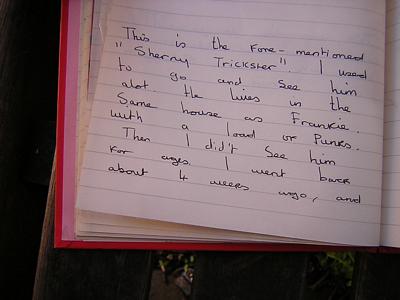 This is the fore-mentioned
"Sherry Trickster". I used
to go and see him
alot. He lives in the
same house as Frankie.
with a load of Punks.
Then I did't see him
for ages. I went back
about 4 weeks ago, and